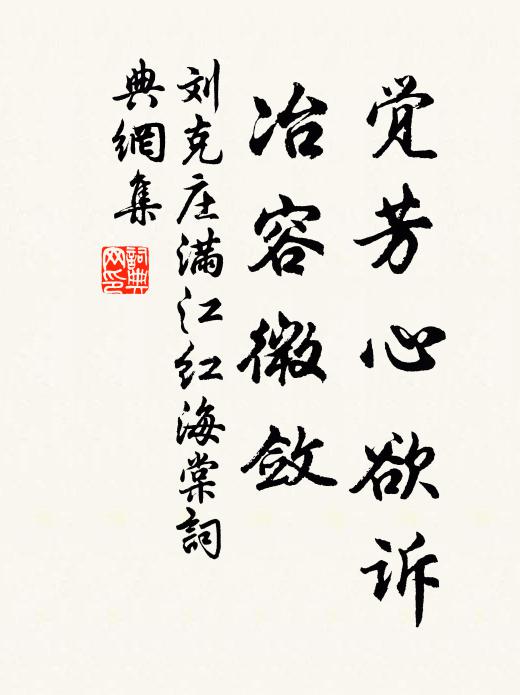 觉芳心欲诉
冶容微敛
刘克庄满江红海棠詞
典網集
詞典网印